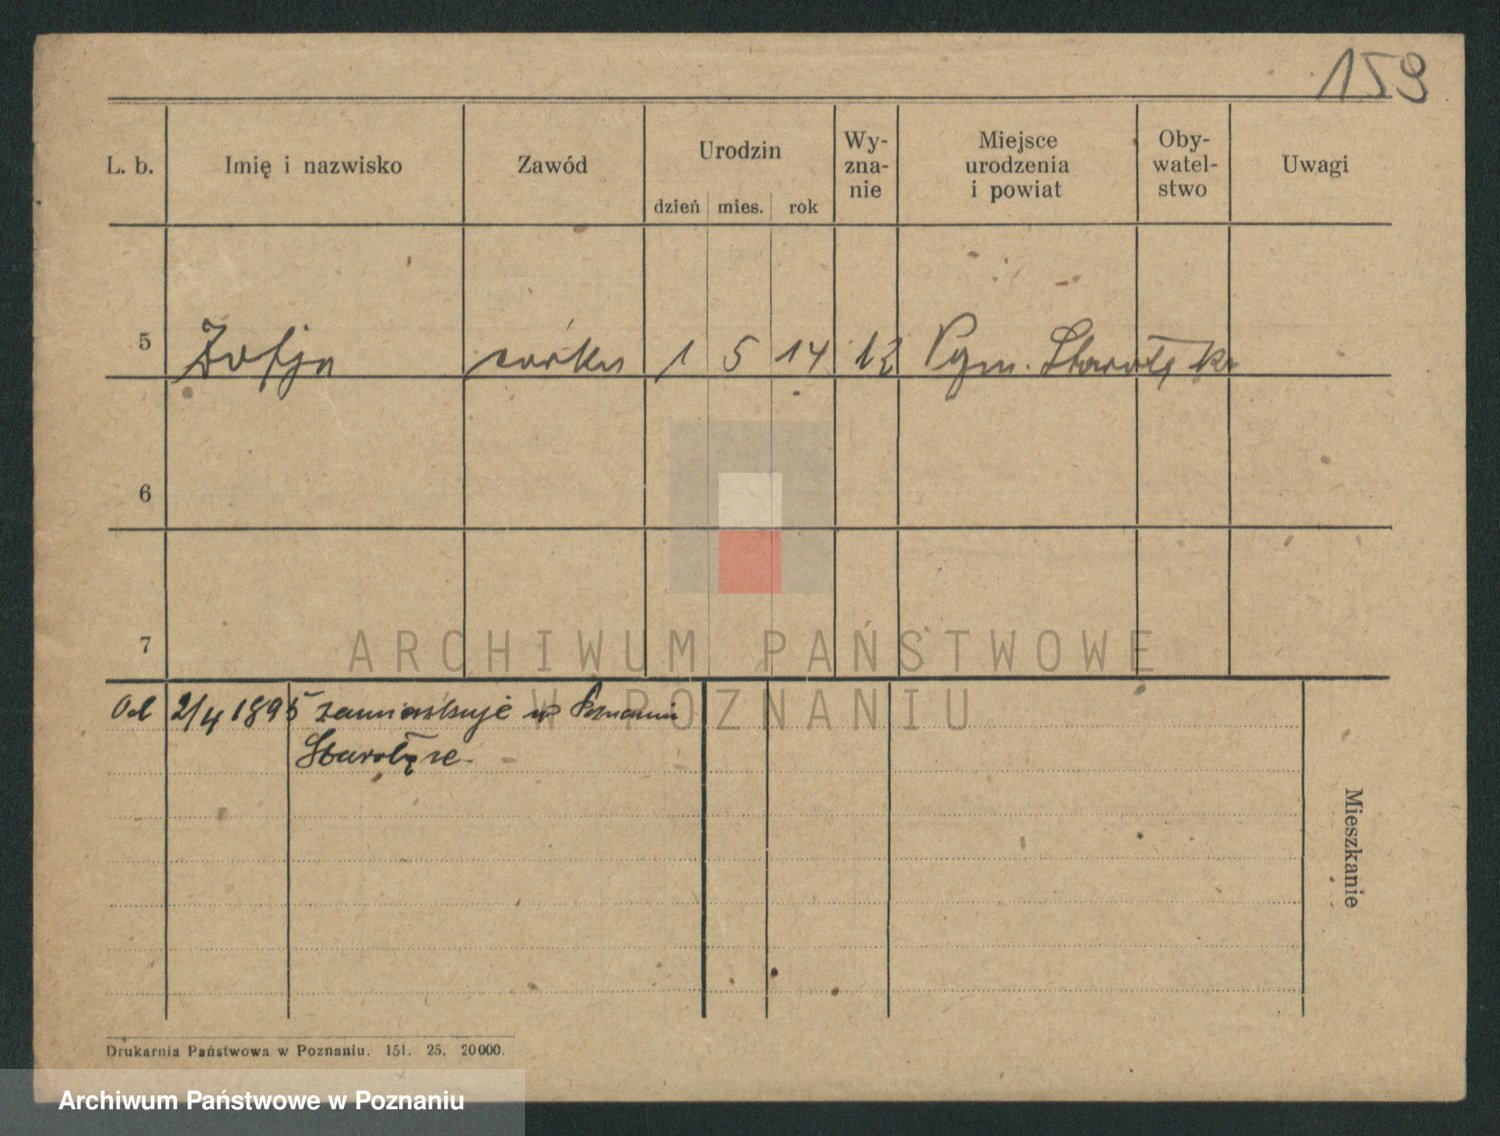 159
L. b. Imię i nazwisko Zawód Urodzin dzień mies. rok Wy-zna-nie Miejsce urodzenia i powiat Oby-watel-stwo Uwagi
5 Zofja córka 1 5 14 Starołęka
6
7
ARCHIWUM PAŃSTWOWE
W POZNANIU
Od 2/4 1895 zamieszkuje w Poznaniu
Starołęce
Mieszkanie
Drukarnia Państwowa w Poznaniu. 151. 25. 20000.
Archiwum Państwowe w Poznaniu